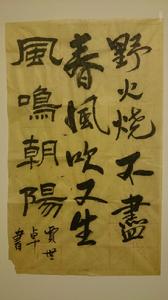 野火烧不盡
春風吹又生
風鳴朝陽
賈世
卓
書